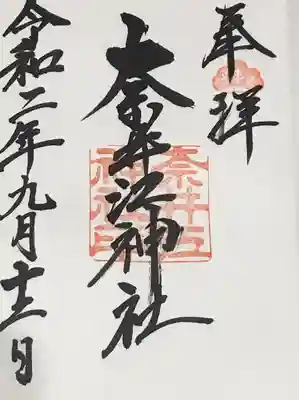 奉拝
奈井江神社
奈井江
神社印
令和二年九月十三日